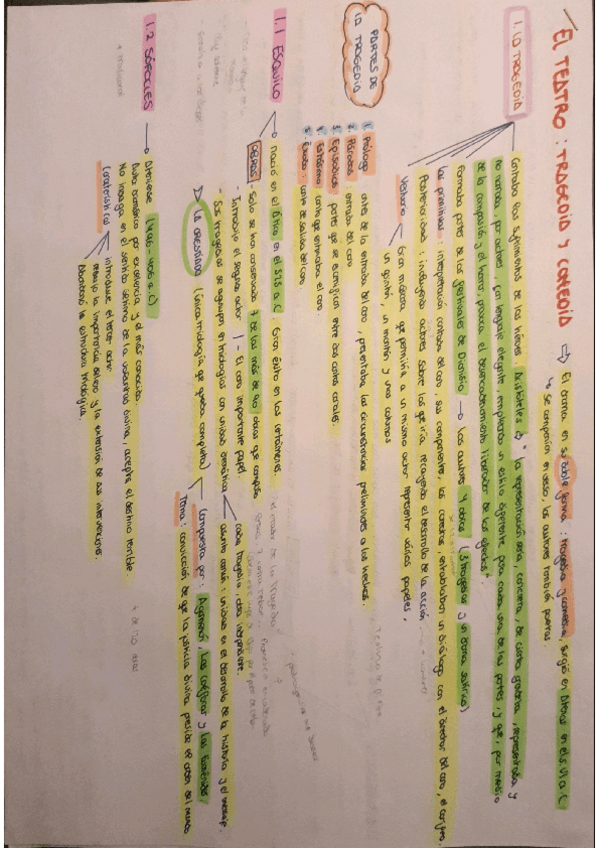 EL TEATRO: TRAGEDIA Y COMEDIA ⇒ El drama en su doble forma: tragedia y comedia, surgió en Atenas en el s. VI a.C
↳ Se componían en verso, los autores también poetas.
1. LA TRAGEDIA
Contaba los sufrimientos de los héroes. Aristóteles → "la representación seria, concreta, de cierta grandeza, representada y
no narrada, por actores, con lenguaje elegante, empleando un estilo diferente para cada una de las partes, y que, por medio
de la compasión y el horror provoca el desencadenamiento liberador de los afectos"
Formaba partes de los festivales de Dionisio → Los autores 4 obras (3 tragedias y un drama satírico)
Las primitivas: interpretación cantada del coro, sus componentes, los coreutas, entablaban un diálogo con el director del coro, el corifeo.
Posterioridad: incluyendo actores sobre los que iría recayendo el desarrollo de la acción.
Vestuario → Gran máscara que permitiría a un mismo actor representar varios papeles,
un quitón, un mantón y unos coturnos
PARTES DE
LA TRAGEDIA
1. Prólogo: antes de la entrada del coro, presentaba las circunstancias preliminares a los hechos
2. Párodos: entrada del coro
3. Episodios: partes que se sumergían entre dos cantos corales.
4. Estásimo: canto que entonaba el coro.
5. Éxodo: canto de salida del coro
1.1 ESQUILO → Nació en el Ática en el S.V a.C. Gran éxito en los certámenes.
OBRAS: Solo se han conservado 7 de las más de 90 obras que compuso
- Introdujo el segundo actor | - El coro importante papel.
- Sus tragedias se agrupan en trilogías con unidad temática
cada tragedia, obra independiente.
asunto común: unidad en el desarrollo de la historia y el mensaje.
LA ORESTIADA (única trilogía que queda completa)
Compuesta por: Agamenón, Las coéforas y Las Euménides
Tema: convicción de que la justicia divina preside el orden del mundo
1.2 SÓFOCLES → Ateniense (496-406 a.C)
Autor dramático por excelencia y el más conocido.
No indaga en el sentido último de la voluntad divina, acepta el destino terrible.
Características
introduce el tercer actor
rebajó la importancia del coro y la extensión de sus intervenciones.
Abandona la estructura trilógica.